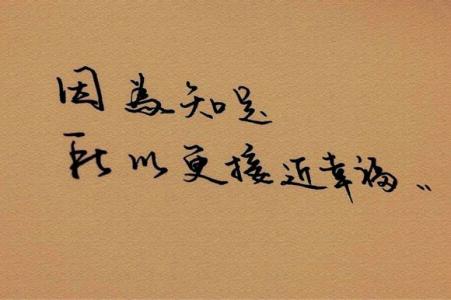 因為知足
所以更接近幸福..